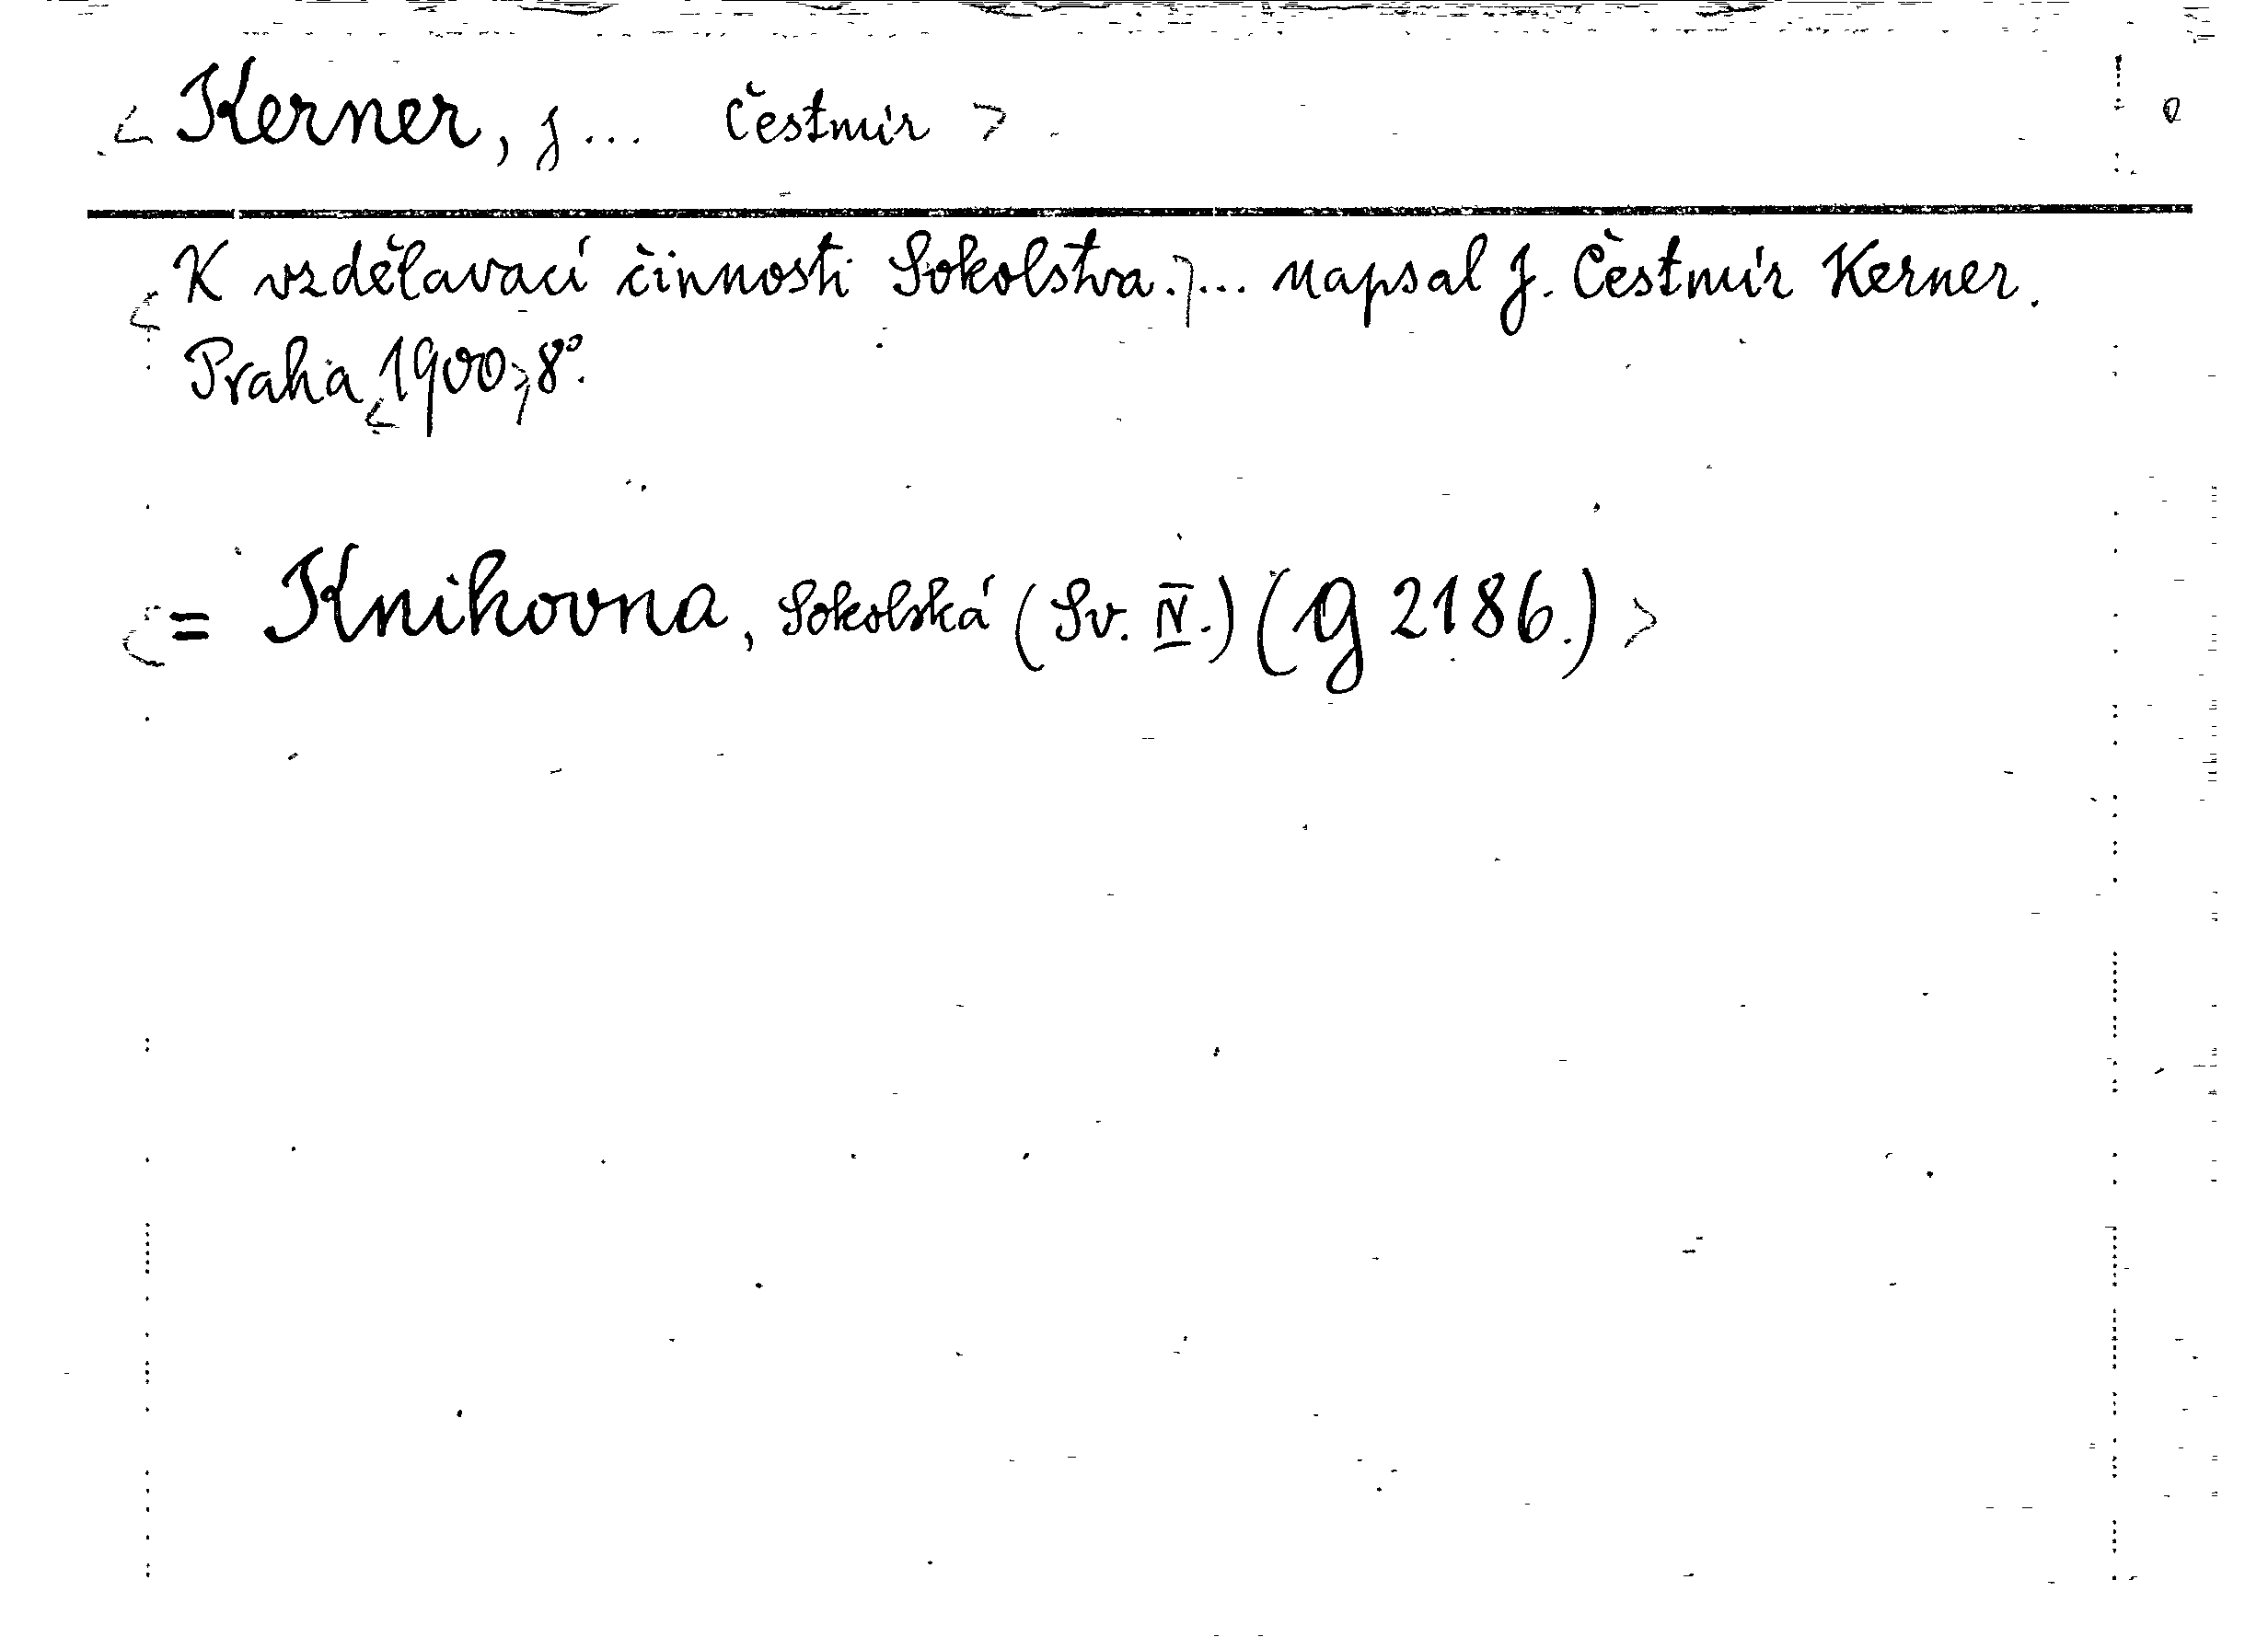 < Kerner, J... Čestmír >
< K vzdělavací činnosti Sokolstva.> ... napsal J. Čestmír Kerner.
Praha <1900>, 8°.
< = Knihovna, Sokolská (Sv. IV.) (G 2186.) >